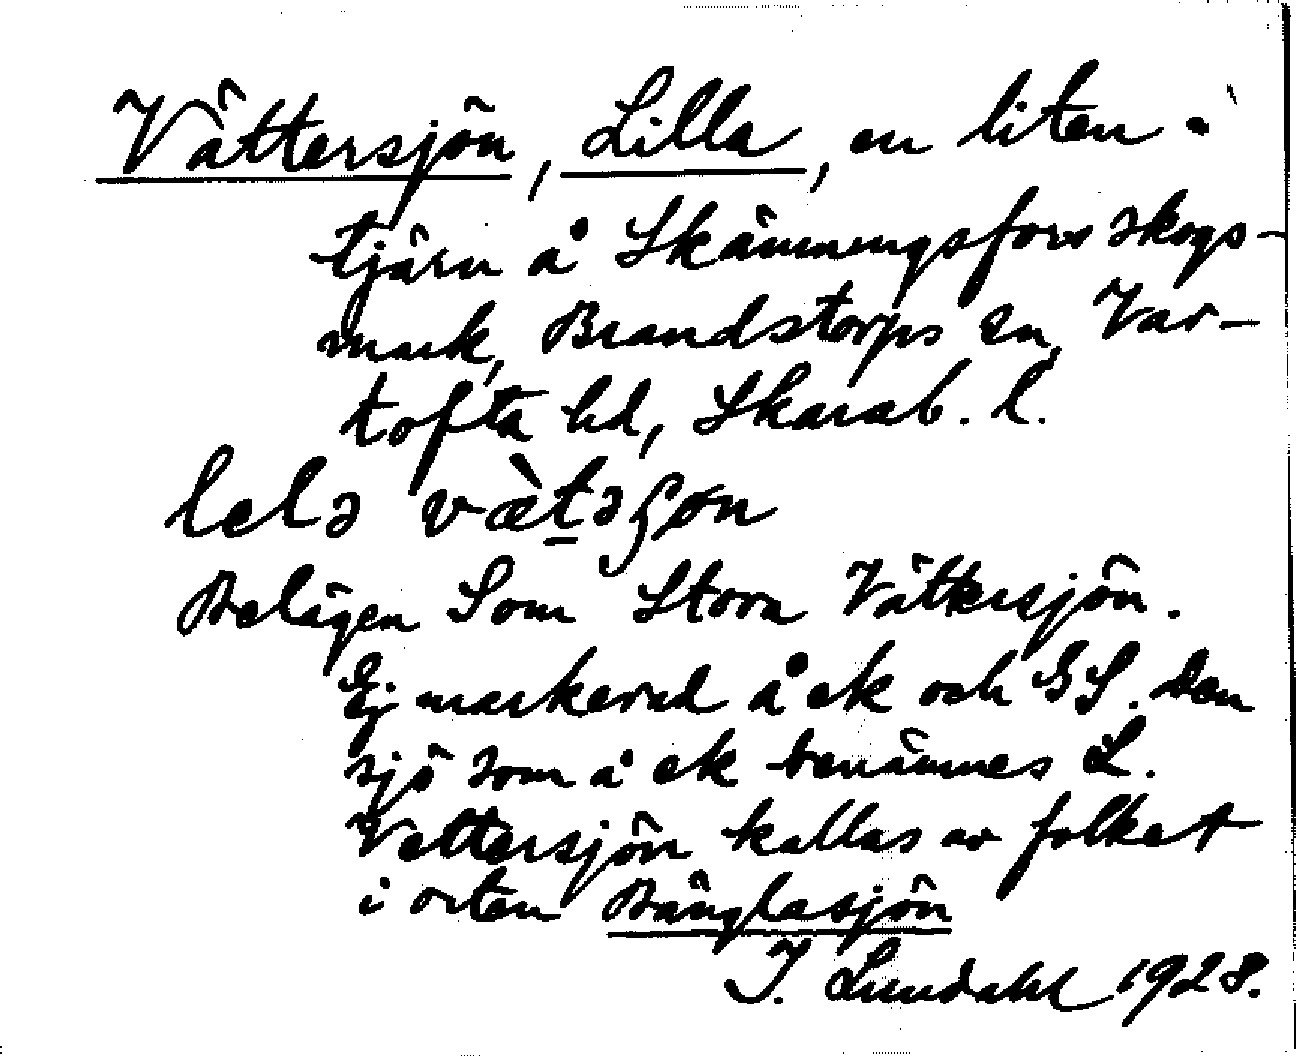 Vättersjön, Lilla, en liten
tjärn å Skämningsfors skogs-
mark, Brandstorps sn, Var-
tofta hd, Skarab. l.
lelə væ̀təʂɔn
Belägen som Stora Vättersjön.
Ej markerad å ek och GS. Den
sjö som å ek benämnes L.
Vettersjön kallas av folket
i orten Bänglasjön
I. Lundahl 1928.